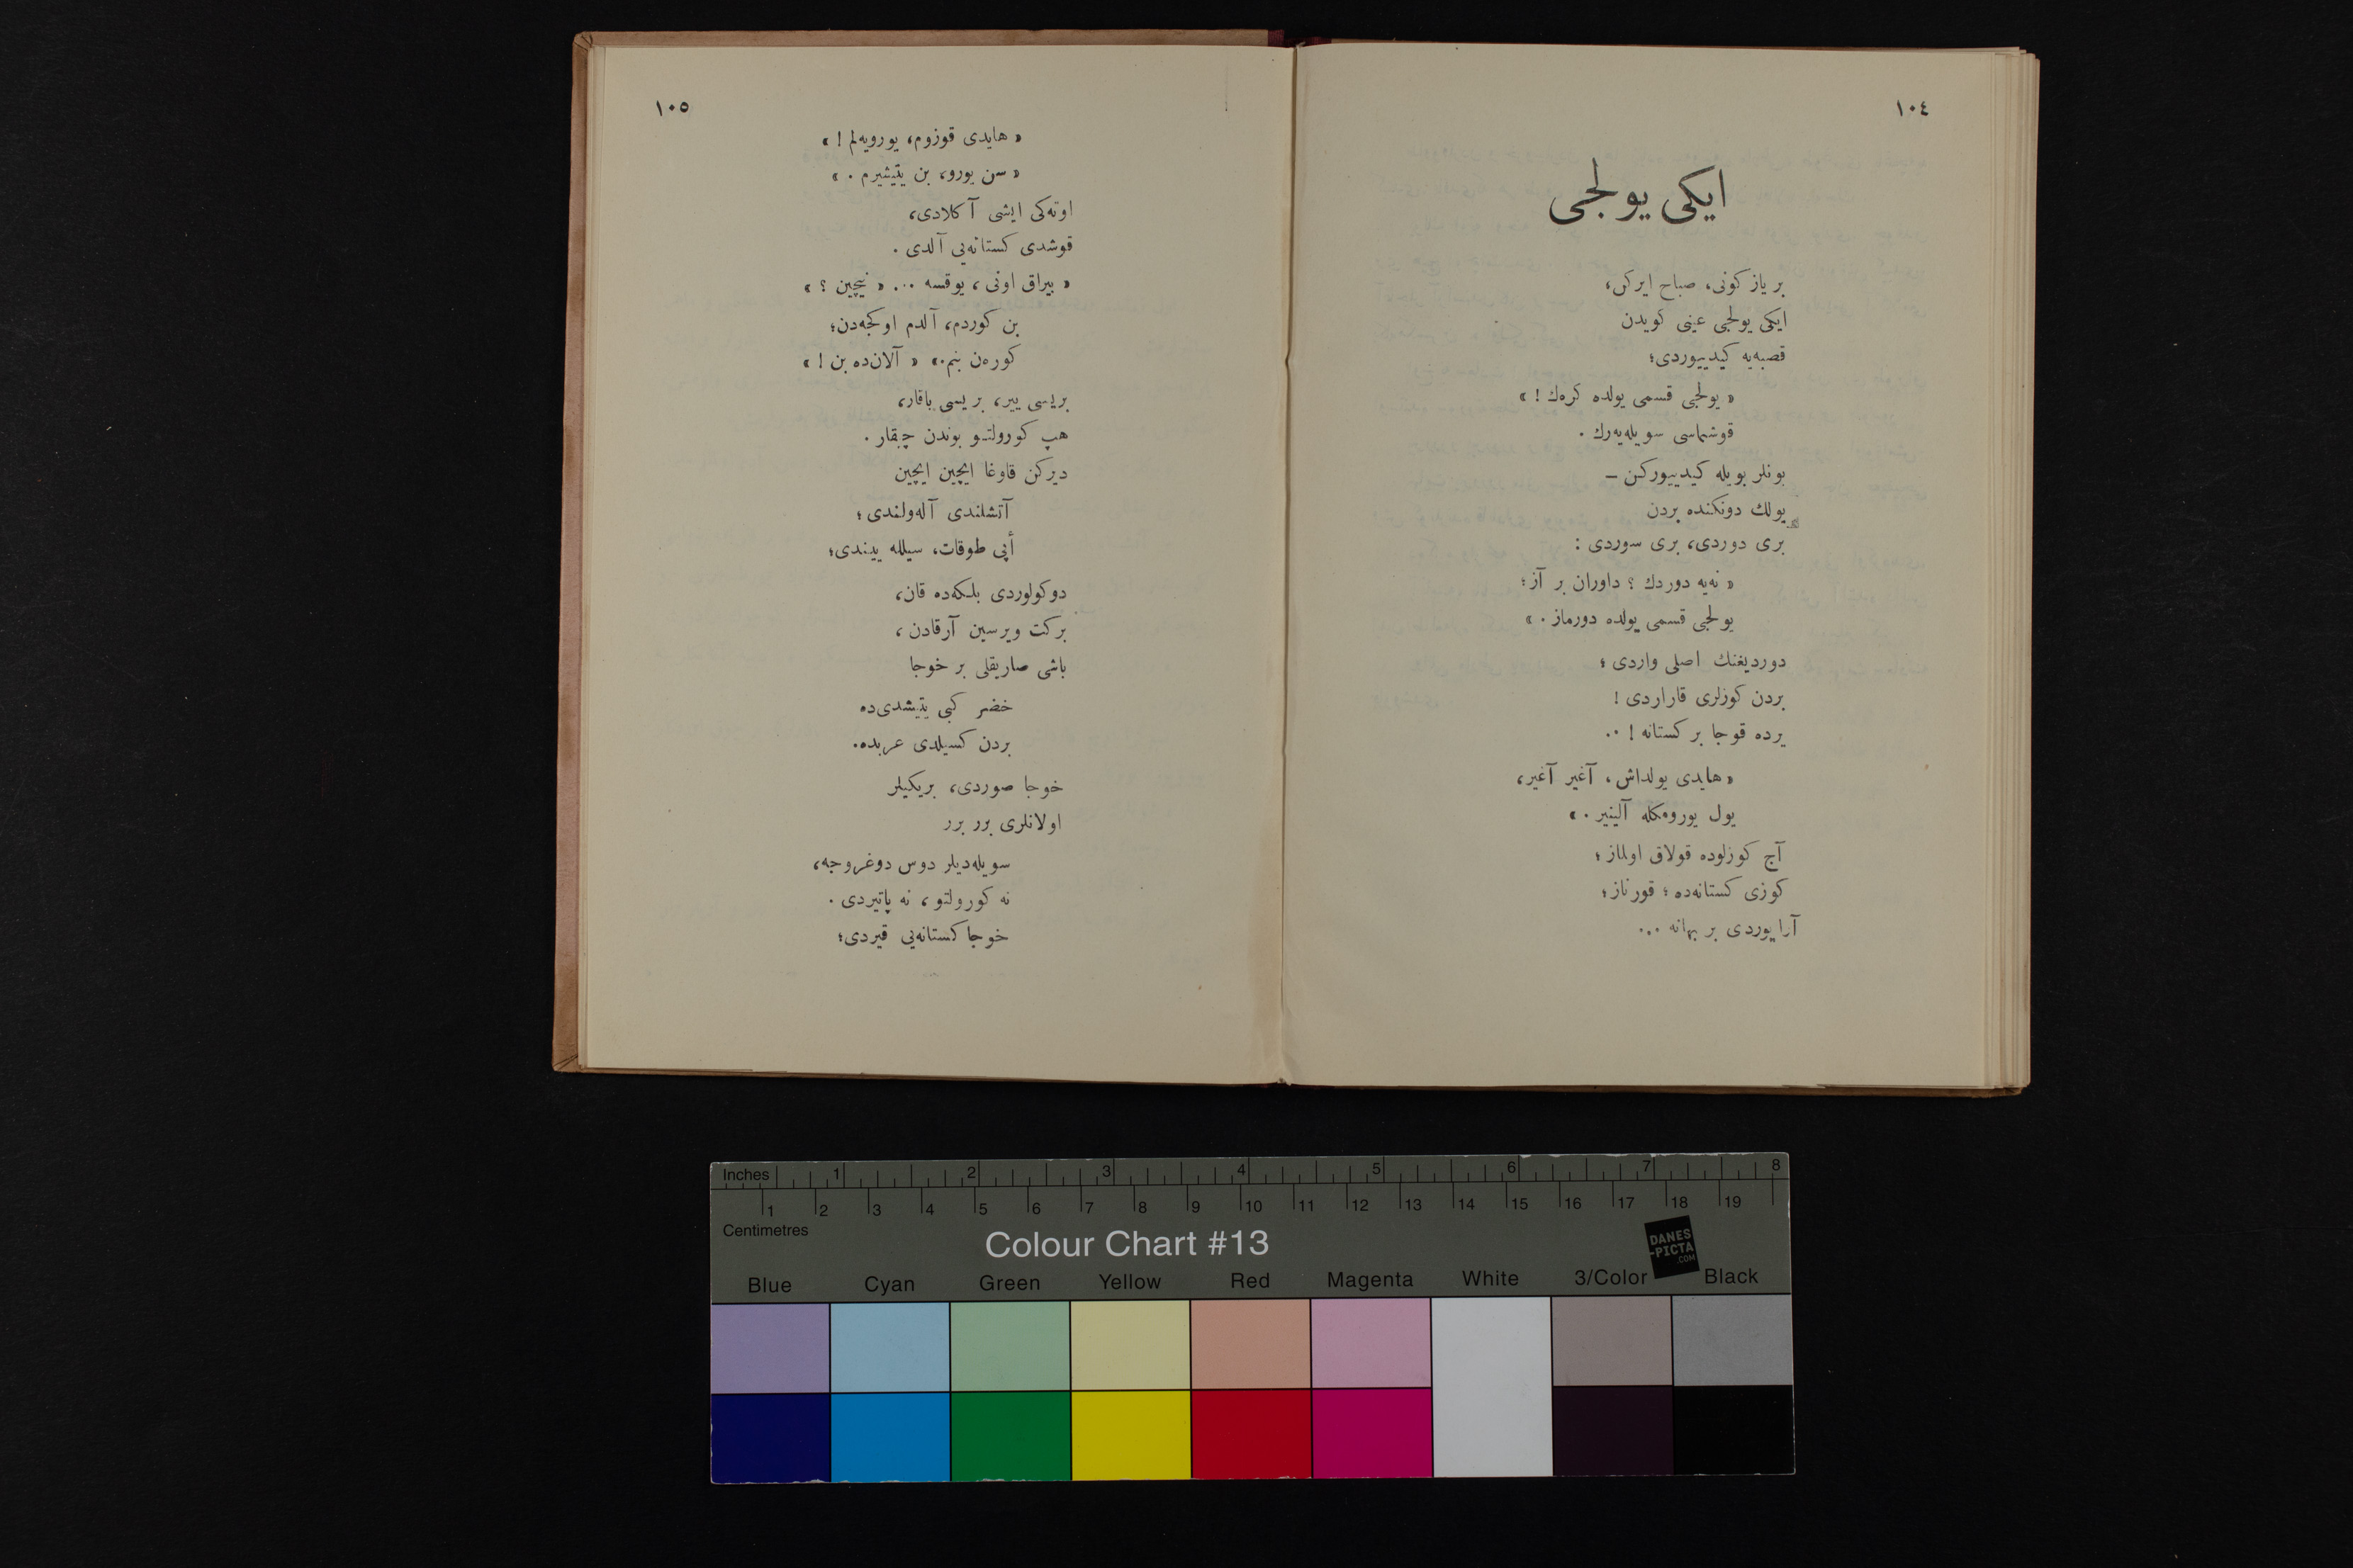 ١٠٤
ایکی یولجی
بر یاز کونی، صباح ایرکن،
ایکی یولجی عینی کویدن
قصبه‌یه کیدییوردی؛
« یولجی قسمی یولده کرەك ! »
قوشماسی سویله‌یەرك .
بونلر بویله کیدییورکن –
یولك دونکنده بردن
بری دوردی، بری سوردی :
« نه‌یه دوردك ؟ داوران بر آز؛
یولجی قسمی یولده دورماز . »
دوردیغنك اصلی واردی ؛
بردن کوزلری قاراردی !
یرده قوجا بر کستانه ! ..
« هایدی یولداش، آغیر آغیر،
یول یورومکله آلینیر . »
آج کوزلوده قولاق اولماز ؛
کوزی کستانه‌ده ؛ قورناز ؛
آرایوردی بر بهانه ...
١٠٥
« هایدی قوزوم، یورویه‌لم ! »
« سن یورو، بن یتیشیرم . »
اوته‌کی ایشی آکلادی،
قوشدی کستانه‌یی آلدی .
« بیراق اونی ، یوقسه ... « نیچین ؟ »
بن کوردم، آلدم اوکجه‌دن؛
کوره‌ن بنم.» « آلان‌ده بن ! »
بریسی ییر، بریسی باقار،
هپ کورولتـو بوندن چیقار .
دیرکن قاوغا ایچین ایچین
آتشلندی آله‌ولندی ؛
أپی طوقات، سیلله ییندی؛
دوکولوردی بلکه‌ده قان،
برکت ویرسین آرقادن ،
باشی صاریقلی بر خوجا
خضر کبی یتیشدی‌ده
بردن کسیلدی عربده.
خوجا صوردی، بریکیلر
اولانلری برر برر
سویله‌دیلر دوس دوغروجه،
نه کورولتو ، نه پاتیردی .
خوجا کستانه‌یی قیردی؛
Inches 1 2 3 4 5 6 7 8
1 2 3 4 5 6 7 8 9 10 11 12 13 14 15 16 17 18 19
Centimetres
Colour Chart #13
DANES
-PICTA
.COM
Blue Cyan Green Yellow Red Magenta White 3/Color Black